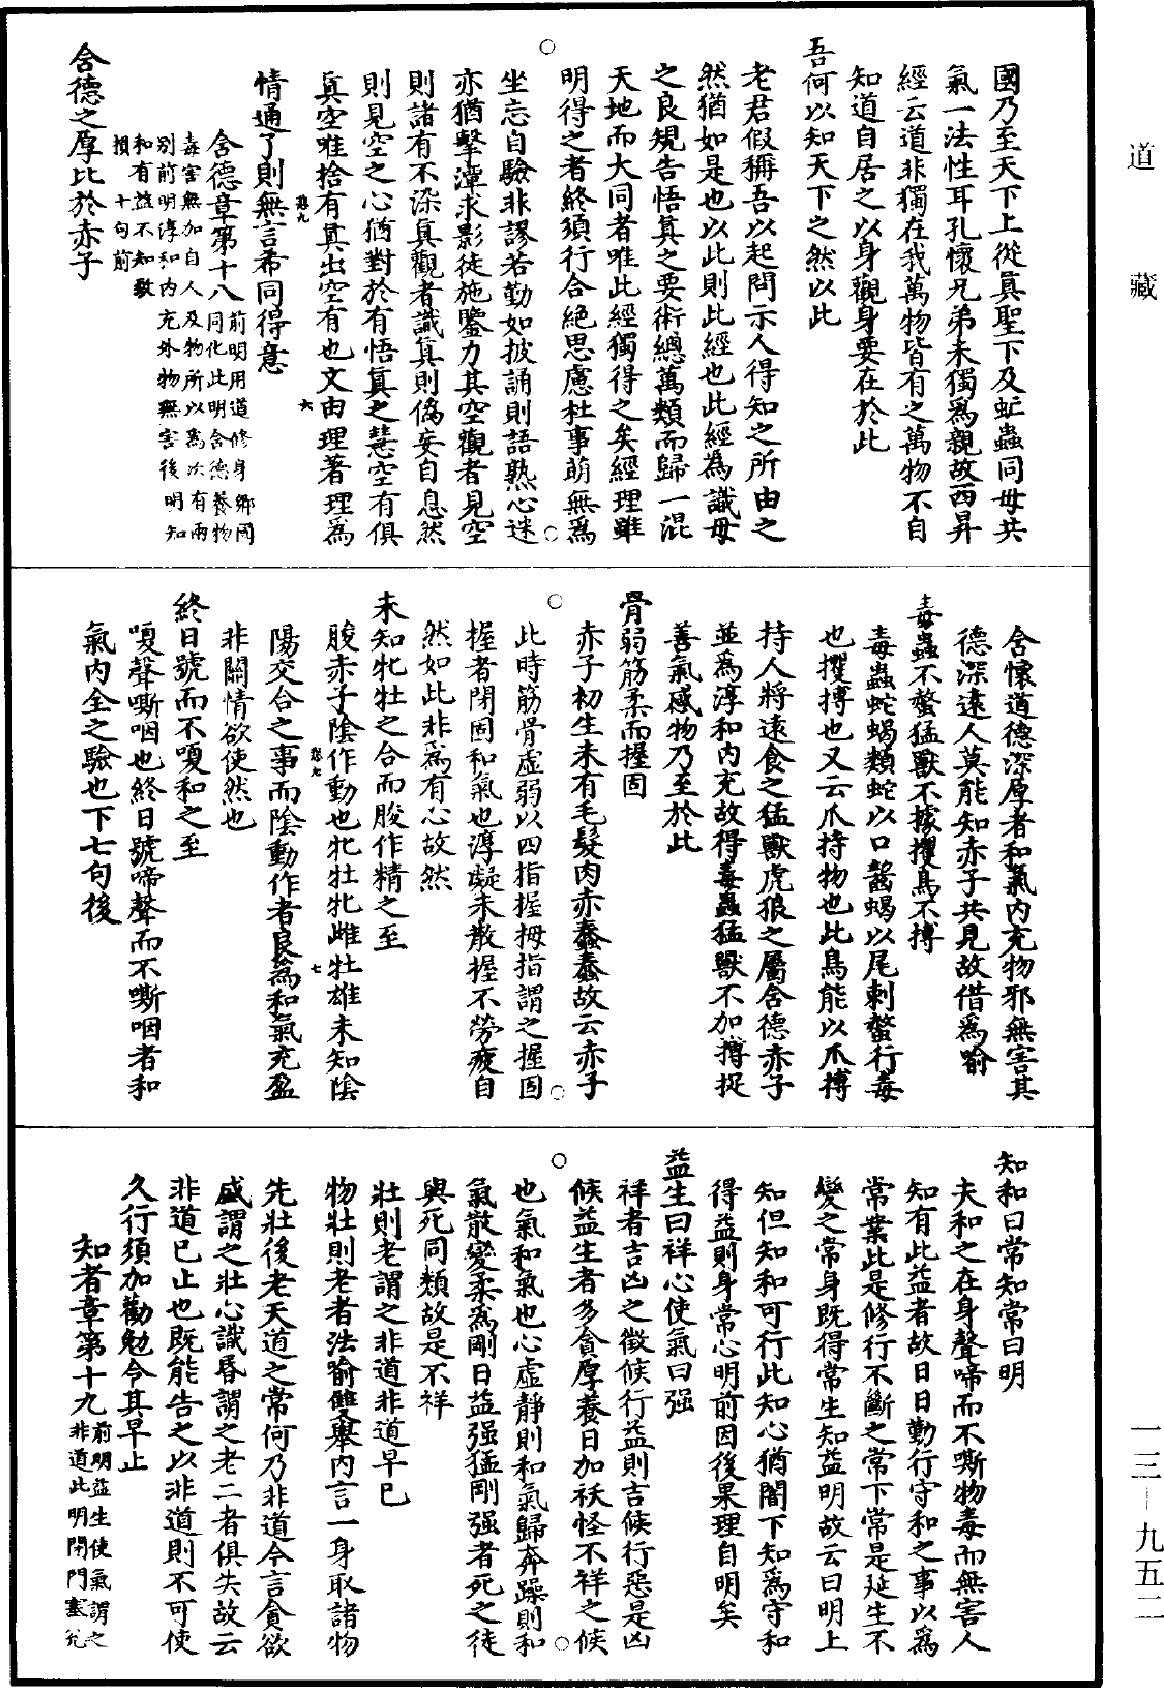 道藏
國乃至天下上從真聖下及虻蟲同毋共
氣一法性耳孔懷兄弟未獨為親故西昇
經云道非獨在我萬物皆有之萬物不自
知道自居之以身觀身要在於此
吾何以知天下之然以此
老君假稱吾以起問示人得知之所由之
然猶如是也以此則此經也此經為識毋
之良規告悟真之要術總萬類而歸一混
天地而大同者唯此經獨得之矣經理雖
明得之者終須行合絕思慮杜事萌無為
坐忘自驗非謬若勤如披誦則語熟心迷
亦猶擊潭求影徒施鑒力其空觀者見空
則諸有不染真觀者識真則偽妄自息然
則見空之心猶對於有悟真之慧空有俱
真空唯捨有真出空有也文由理著理為
悲九 六
情通了則無言希同得意
含德章第十八前明用道修身鄉國
同化此明含德養物
毒害無加自人及物所以為次有兩
別前明淳和內充外物無害後明知
和有益不知致
損十句前
含德之厚比於赤子
含懷道德深厚者和氣內充物邪無害其
德深遠人莫能知赤子共見故借為喻
毒蟲不螫猛獸不據攫鳥不搏
毒蟲蛇蝎類蛇以口齧蝎以尾刺螫行毒
也攫搏也又云爪持物也此鳥能以爪搏
持人將遠食之猛獸虎狼之屬含德赤子
並為淳和內充故得毒蟲猛獸不加搏捉
善氣感物乃至於此
骨弱筋柔而握固
赤子初生未有毛髮肉赤蠢蠢故云赤子
此時筋骨虛弱以四指握拇指謂之握固
握者閉固和氣也淳凝未散握不勞疲自
然如此非為有心故然
未知牝牡之合而朘作精之至
朘赤子陰作動也牝牡牝雌牡雄未知陰
悲九 七
陽交合之事而陰動作者良為和氣充盈
非關情欲使然也
終日號而不嗄和之至
嗄聲嘶咽也終日號啼聲而不嘶咽者和
氣內全之驗也下七句後
知和曰常知常曰明
夫和之在身聲啼而不嘶物毒而無害人
知有此益者故日日勤行守和之事以為
常業此是修行不斷之常下常是延生不
變之常身既得常生知益明故云曰明上
知但知和可行此知心猶闇下知為守和
得益則身常心明前因後果理自明矣
益生曰祥心使氣曰强
祥者吉凶之徵候行益則吉候行惡是凶
候益生者多貪厚養日加袄怪不祥之候
也氣和氣也心虛靜則和氣歸奔躁則和
氣散變柔為剛日益强猛剛强者死之徒
與死同類故是不祥
壯則老謂之非道非道早已
物壯則老者法喻雙舉內言一身取諸物
先壯後老天道之常何乃非道今言貪欲
盛謂之壯心識昏謂之老二者俱失故云
非道已止也既能告之以非道則不可使
久行須加勸勉令其早止
知者章第十九前明益生使氣謂之
非道此明閉門塞兊
一三—九五二